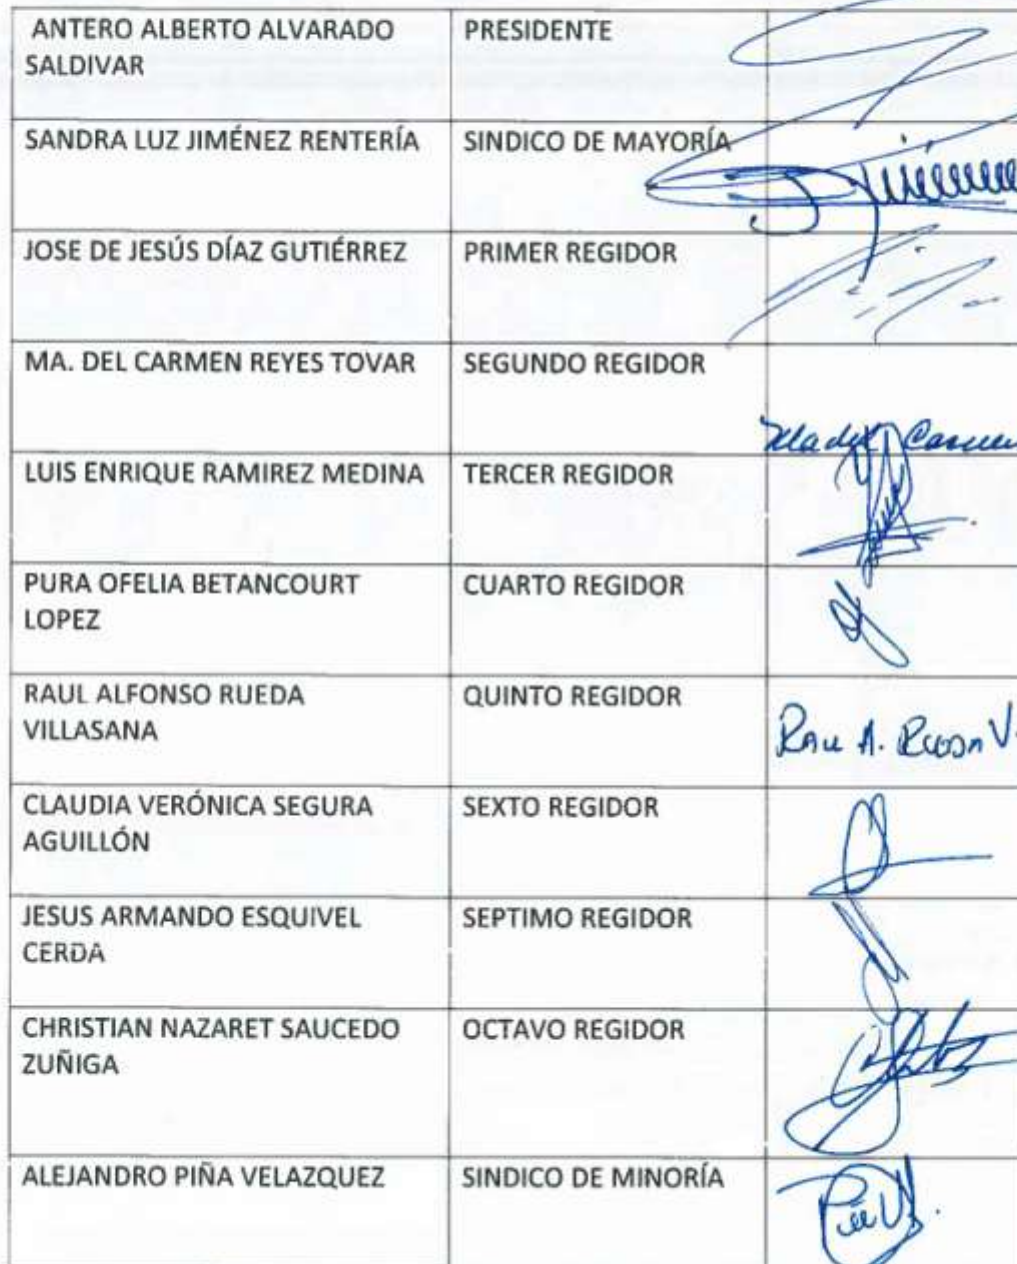 ANTERO ALBERTO ALVARADO
SALDIVAR
PRESIDENTE
SANDRA LUZ JIMÉNEZ RENTERÍA
SINDICO DE MAYORÍA
JOSE DE JESÚS DÍAZ GUTIÉRREZ
PRIMER REGIDOR
MA. DEL CARMEN REYES TOVAR
SEGUNDO REGIDOR
LUIS ENRIQUE RAMIREZ MEDINA
TERCER REGIDOR
PURA OFELIA BETANCOURT
LOPEZ
CUARTO REGIDOR
RAUL ALFONSO RUEDA
VILLASANA
QUINTO REGIDOR
RAUL A. RUEDA V.
CLAUDIA VERÓNICA SEGURA
AGUILLÓN
SEXTO REGIDOR
JESUS ARMANDO ESQUIVEL
CERDA
SEPTIMO REGIDOR
CHRISTIAN NAZARET SAUCEDO
ZUÑIGA
OCTAVO REGIDOR
ALEJANDRO PIÑA VELAZQUEZ
SINDICO DE MINORÍA